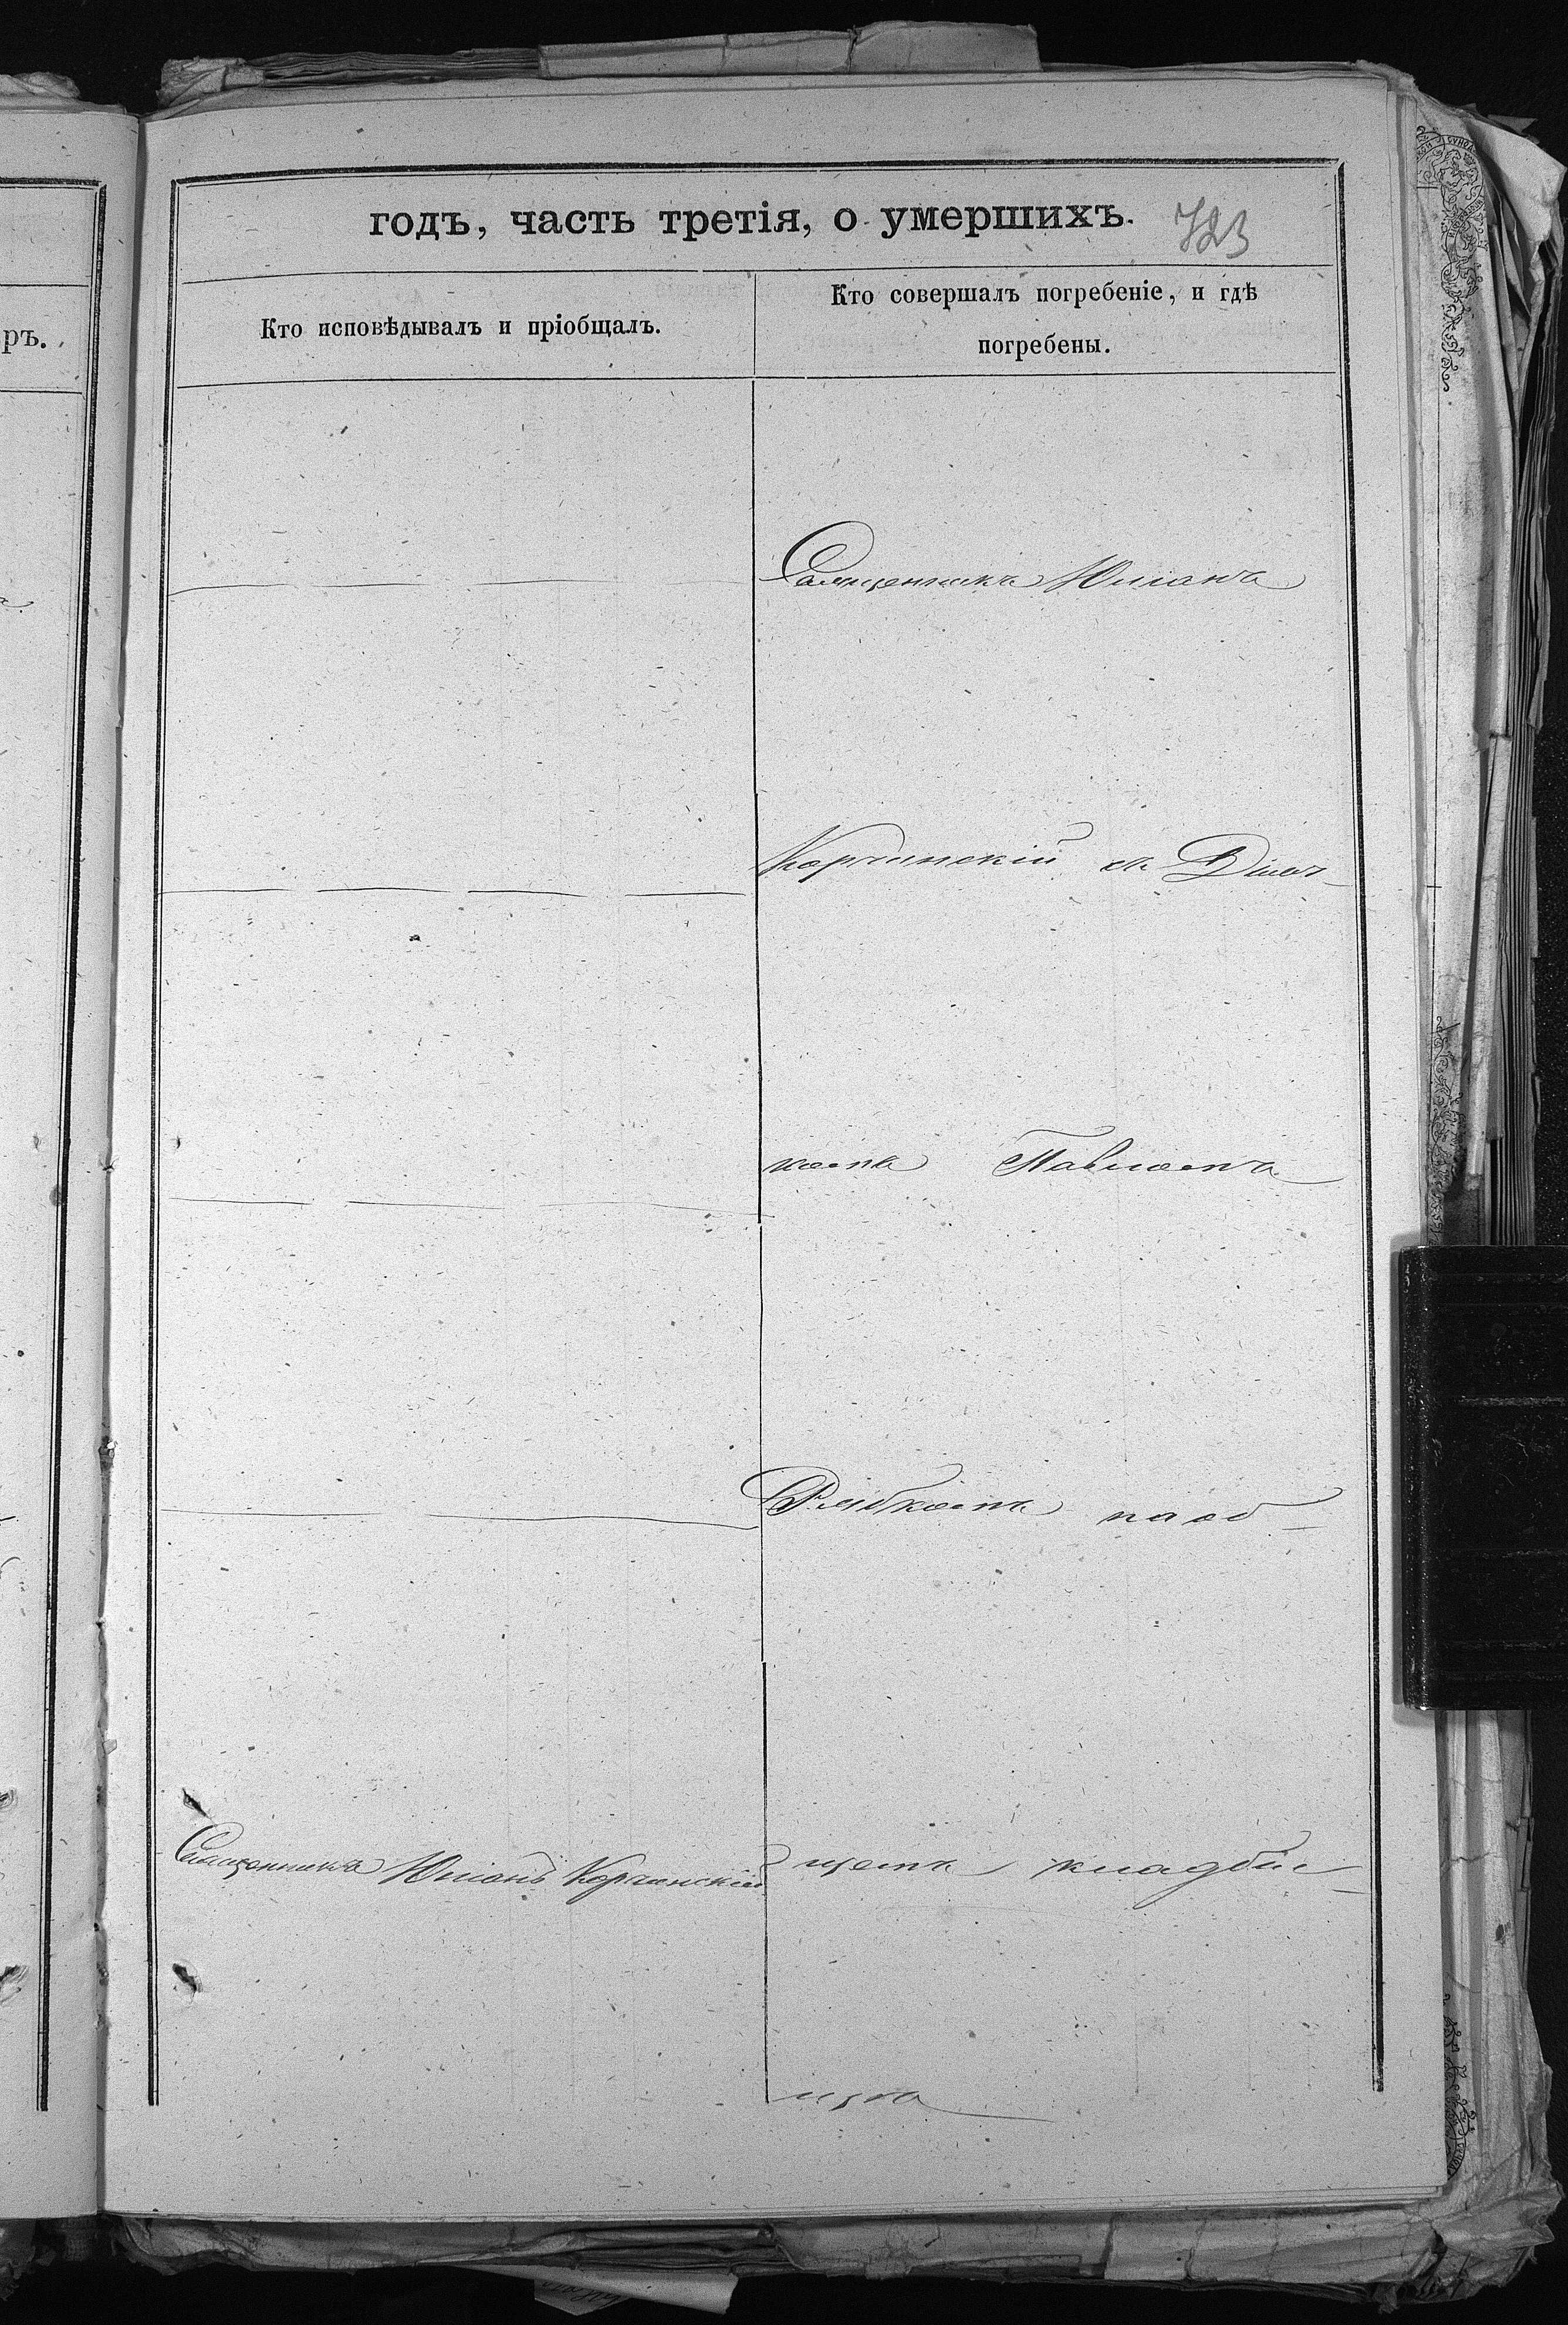 годъ, часть третія, о умершихъ. 723
Кто исповѣдывалъ и пріобщалъ.
Кто совершалъ погребеніе, и гдѣ
погребены.
ръ.
Священникъ Юліанъ
Корчинскій съ Дьяч-
комъ Павломъ
Рябкомъ на об-
Священникъ Юліанъ Корчинскій
щемъ кладби-
щѣ